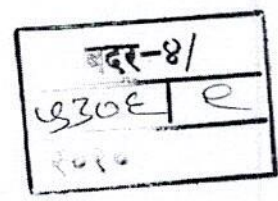 बदर-४/
५३०६ | ९
२०१०